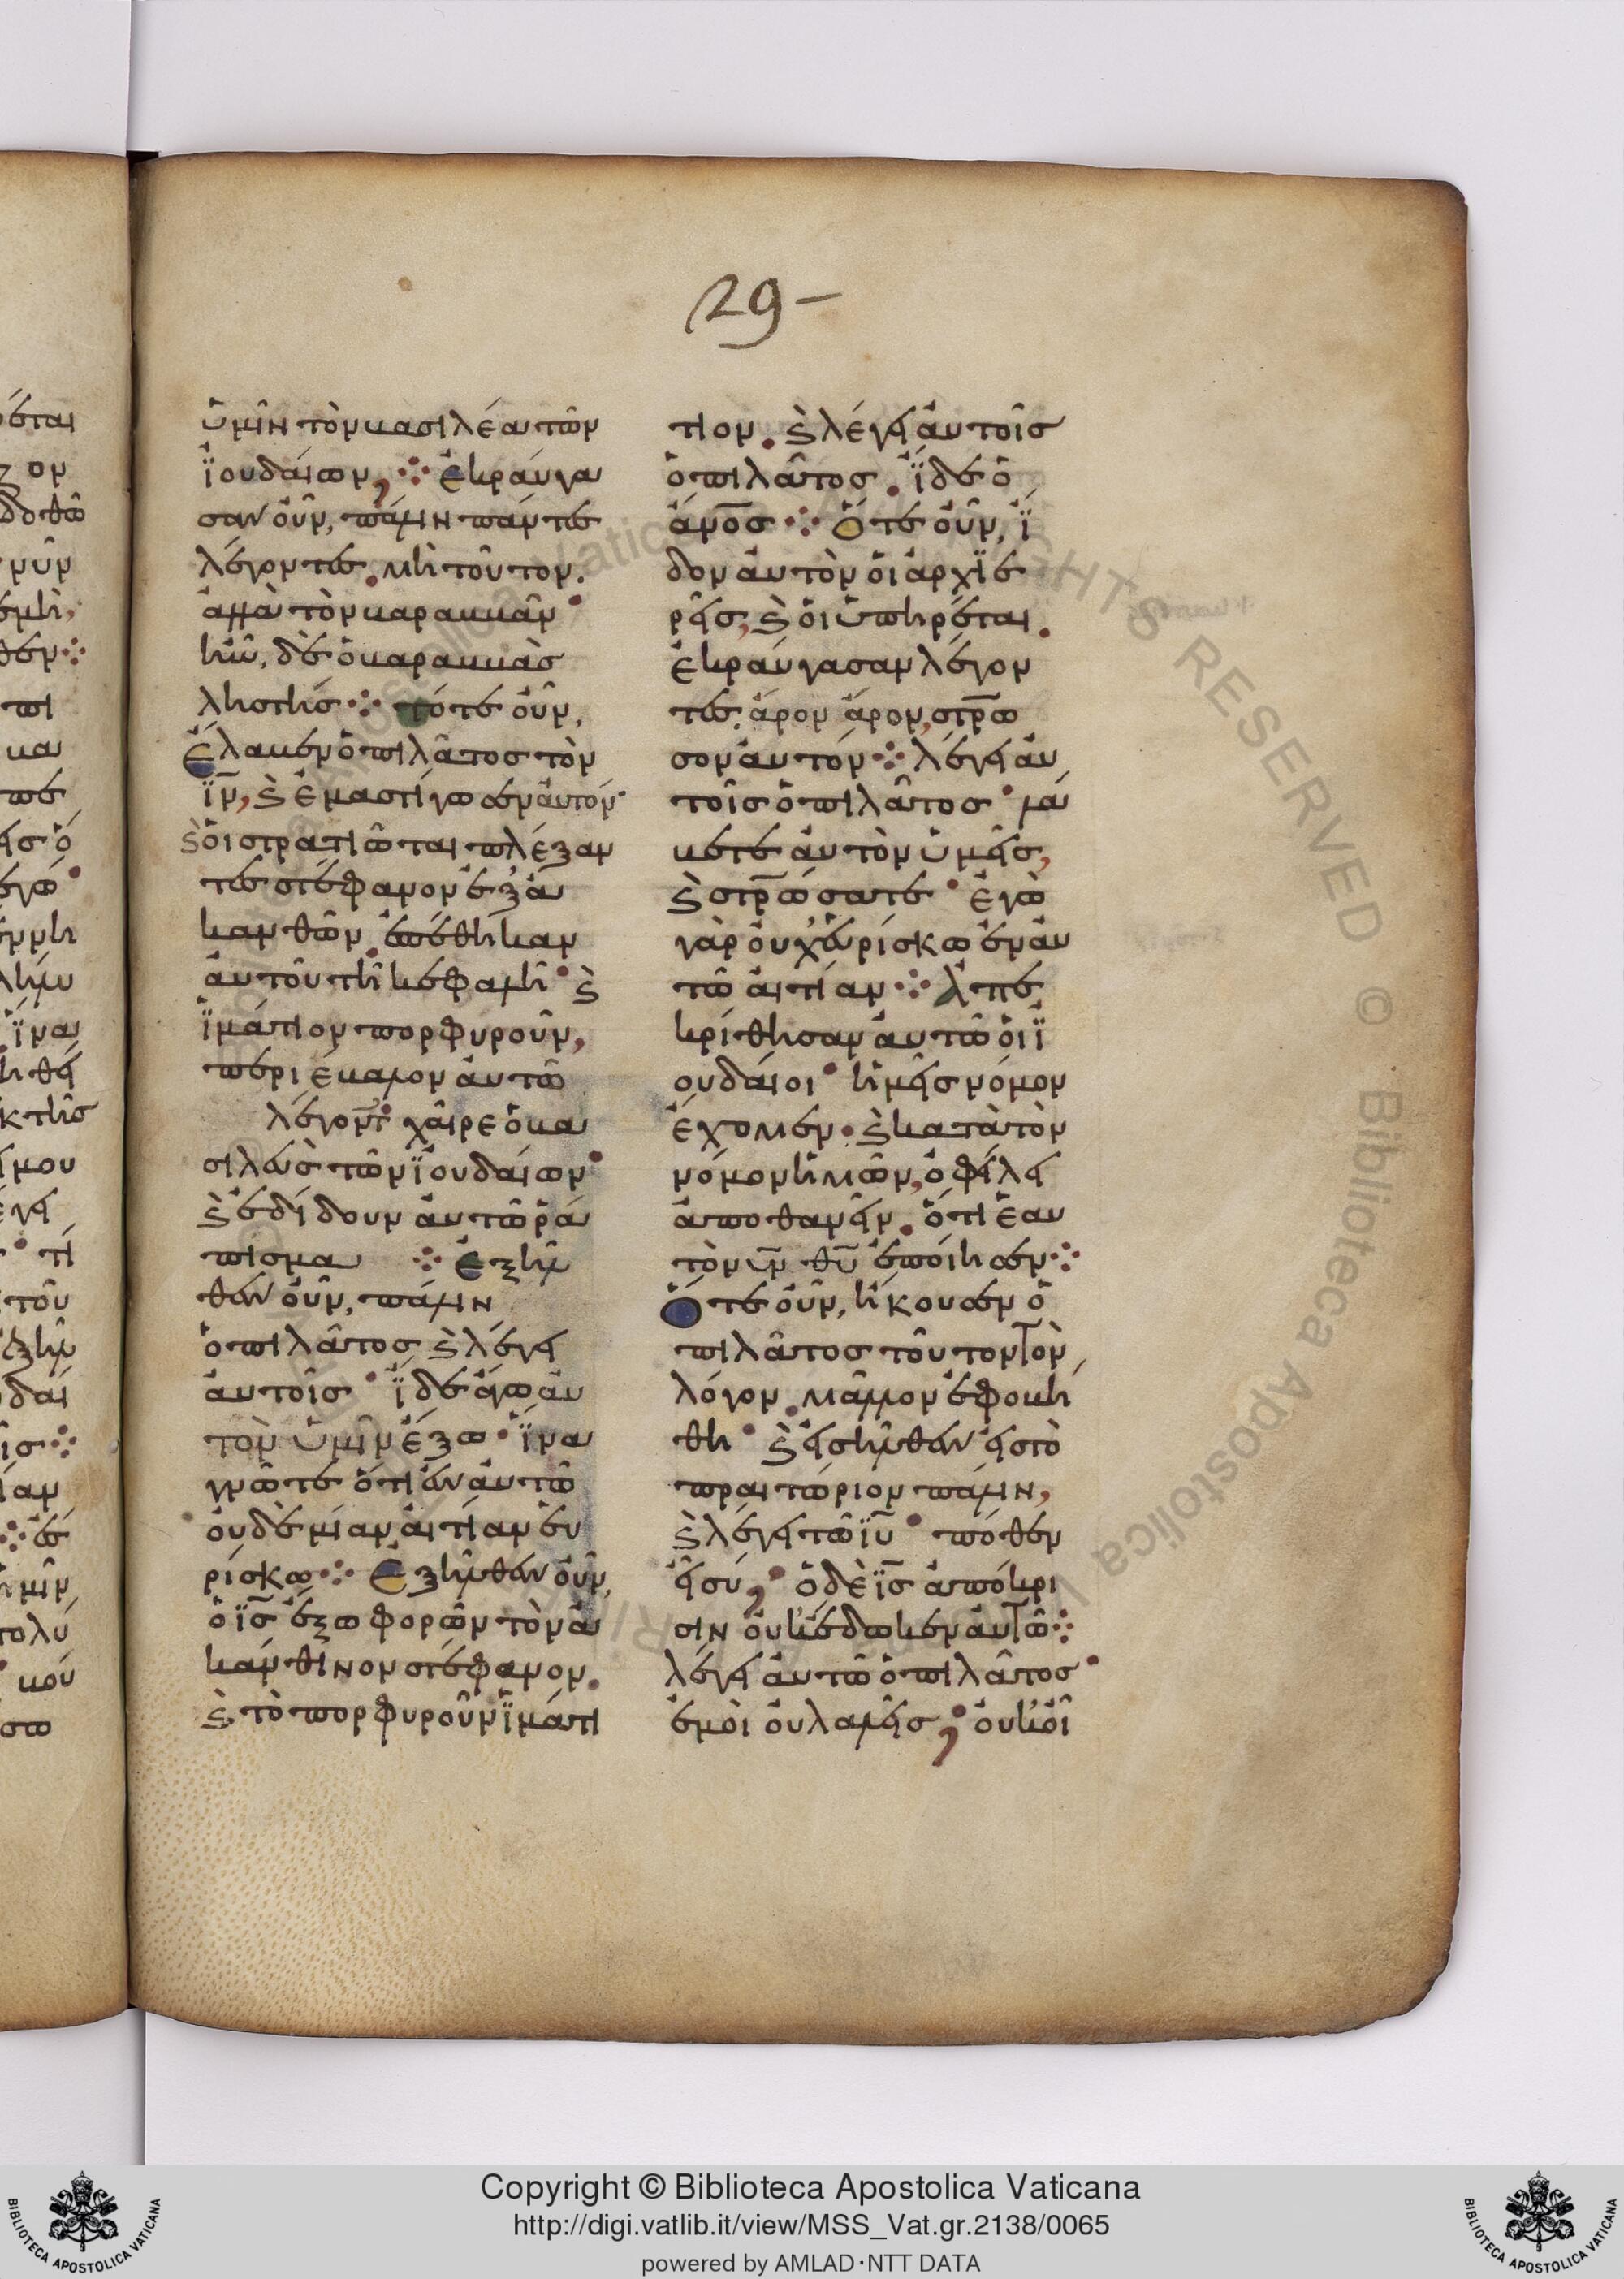 29-
ὑμῖν τὸν βασιλέα τῶν
ἰουδαίων, ἐκραύγα
σαν οὖν, πάλιν πάντες
λέγοντες. μὴ τοῦτον.
ἀλλὰ τὸν βαραββᾶν
ἦν, δὲ ὁ βαραββὰς
ληστής τότε οὖν,
Ἔλαβεν ὁ πιλᾶτος τὸν
ιν, ϗ ἐμαστίγωσεν αὐτόν
ϗ οἱ στρατιῶται πλέξαν
τες στέφανον ἐξ ἀ
κανθῶν ἐπέθηκαν
αὐτοῦ τῆ κεφαλῆ ϗ
ἱμάτιον πορφυροῦν,
περιέβαλον αὐτῶ
λέγοντ χαῖρε ὁ βα
σιλεὺς τῶν ἰουδαίων
ϗ ἐδίδουν αὐτῶ ῥά
πισμα Ἐξῆλ
θεν οὖν, πάλιν
ὁ πιλᾶτος ϗ λέγει
αὐτοῖς ἴδε ἄγω αὐ
τὸν ὑμῖν ἔξω ἵνα
γνῶτε ὅτι ἐν αὐτῶ
οὐδὲ μίαν αἰτίαν εὑ
ρίσκω Ἐξῆλθεν οὖν,
ὁ ις ἔξω φορῶν τὸν ἀ
κάνθινον στέφανον.
ϗ τὸ πορφυροῦν ἱμάτι
τιον. ϗ λέγει αὐτοῖς
ὁ πιλᾶτος. ἴδε ὁ
ἄνος Ὅτε οὖν, ἴ
δον αὐτὸν οἱ ἀρχιε
ρεῖς, ϗ οἱ ὑπηρέται.
ἐκραύγασαν λέγον
τες. ἆρον ἆρον, στρω
σον αὐτόν λέγει αὐ
τοῖς ὁ πιλᾶτος λά
βετε αὐτὸν ὑμεῖς,
ϗ στρώσατε ἐγὼ
γὰρ οὐχ εὑρίσκω ἐν αὐ
τῶ αἰτίαν Ἀπε
κρίθησαν αὐτῶ οἱ ἰ
ουδαῖοι ἡμεῖς νόμον
ἔχομεν. ϗ κατὰ τὸν
νόμον ἡμῶν, ὀφείλει
ἀποθανεῖν. ὅτι ἑαυ
τὸν υν θυ ἐποίησεν
Ὅτε οὖν, ἤκουσεν ὁ
πιλᾶτος τοῦτον τὸν,
λόγον. μᾶλλον ἐφοβή
θη ϗ εἰσῆλθεν εἰς τὸ
πραιτώριον πάλιν,
ϗ λέγει τῶ ιυ πόθεν
εἶ σύ, ὁ δὲ ις ἀπόκρι
σιν οὐκ ἔδωκεν αὐτῶ
λέγει αὐτῶ ὁ πιλᾶτος
ἐμοὶ οὐ λαλεῖς, οὐκ οἶ
COPYRIGHT RESERVED © Biblioteca Apostolica Vaticana
Copyright © Biblioteca Apostolica Vaticana
http://digi.vatlib.it/view/MSS_Vat.gr.2138/0065
powered by AMLAD·NTT DATA
BIBLIOTECA APOSTOLICA VATICANA
BIBLIOTECA APOSTOLICA VATICANA